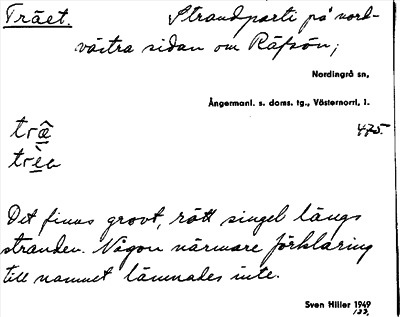 Träet. Strandparti på nord-
västra sidan om Räfsön;
Nordingrå sn,
Ångermanl. s. doms. tg., Västernorrl. l.
trâ̱ 475.
trè̱a
Det finns grovt, rött singel längs
stranden. Någon närmare förklaring
till namnet lämnades inte.
Sven Hiller 1949